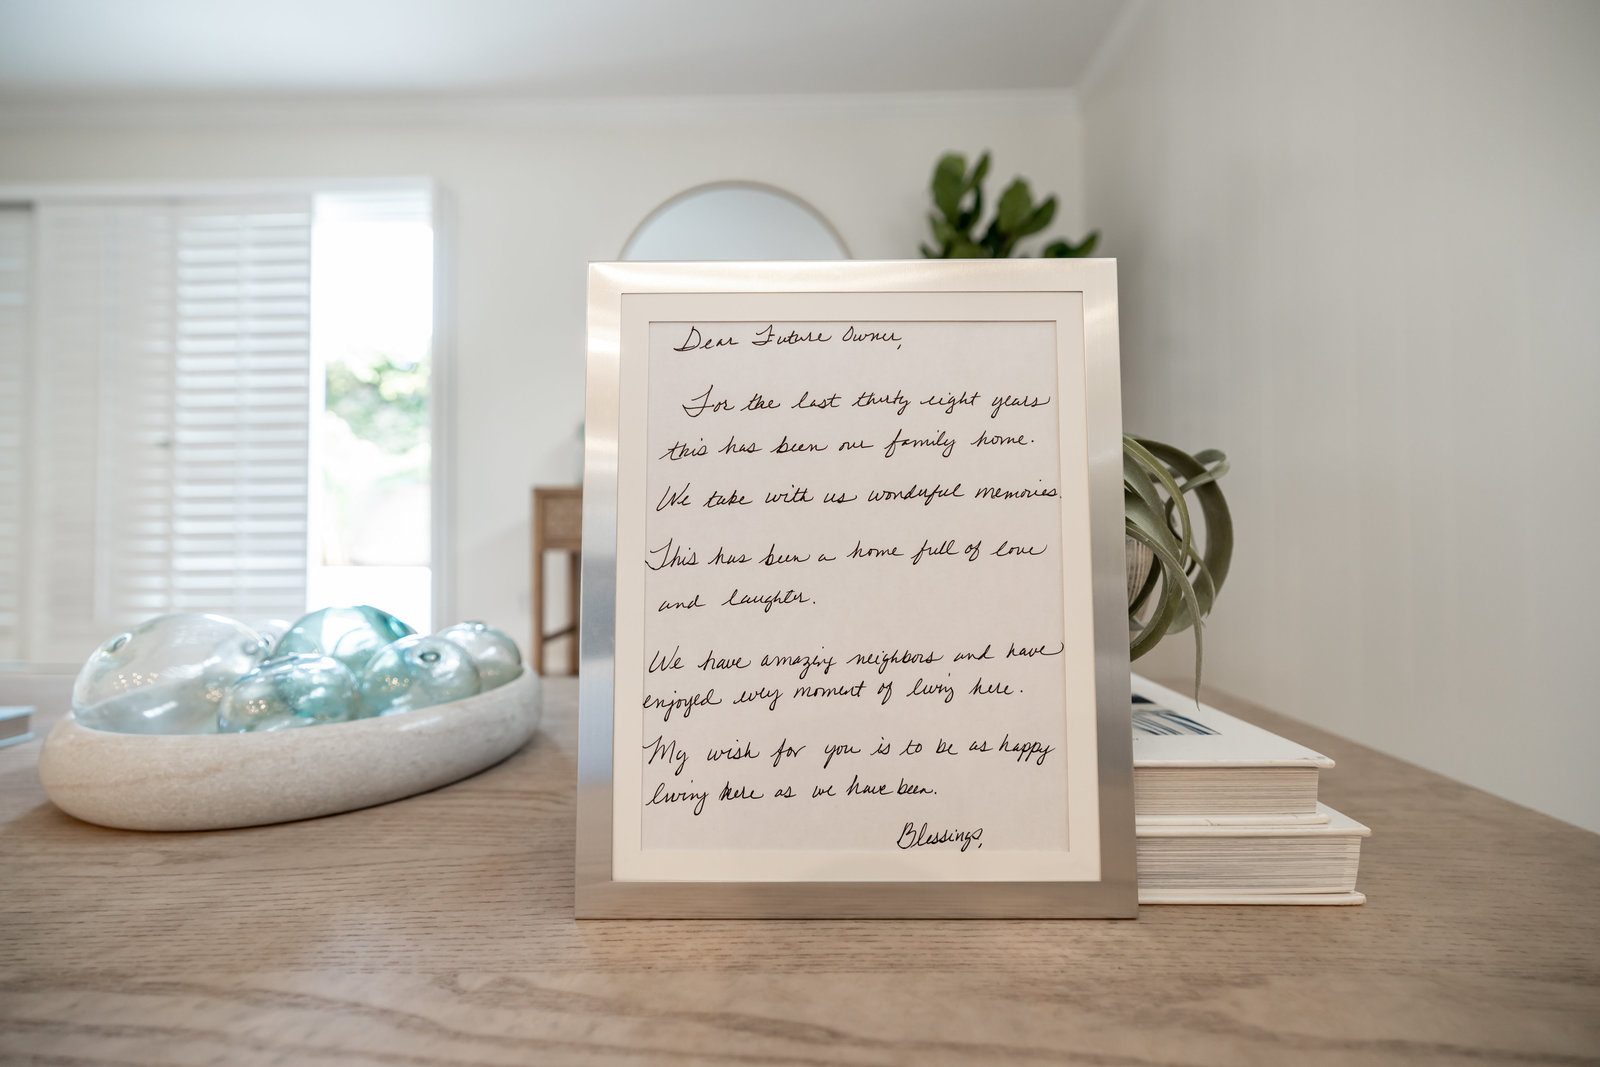 Dear Future Owner,
For the last thirty eight years
this has been our family home.
We take with us wonderful memories.
This has been a home full of love
and laughter.
We have amazing neighbors and have
enjoyed every moment of living here.
My wish for you is to be as happy
living here as we have been.
Blessings,